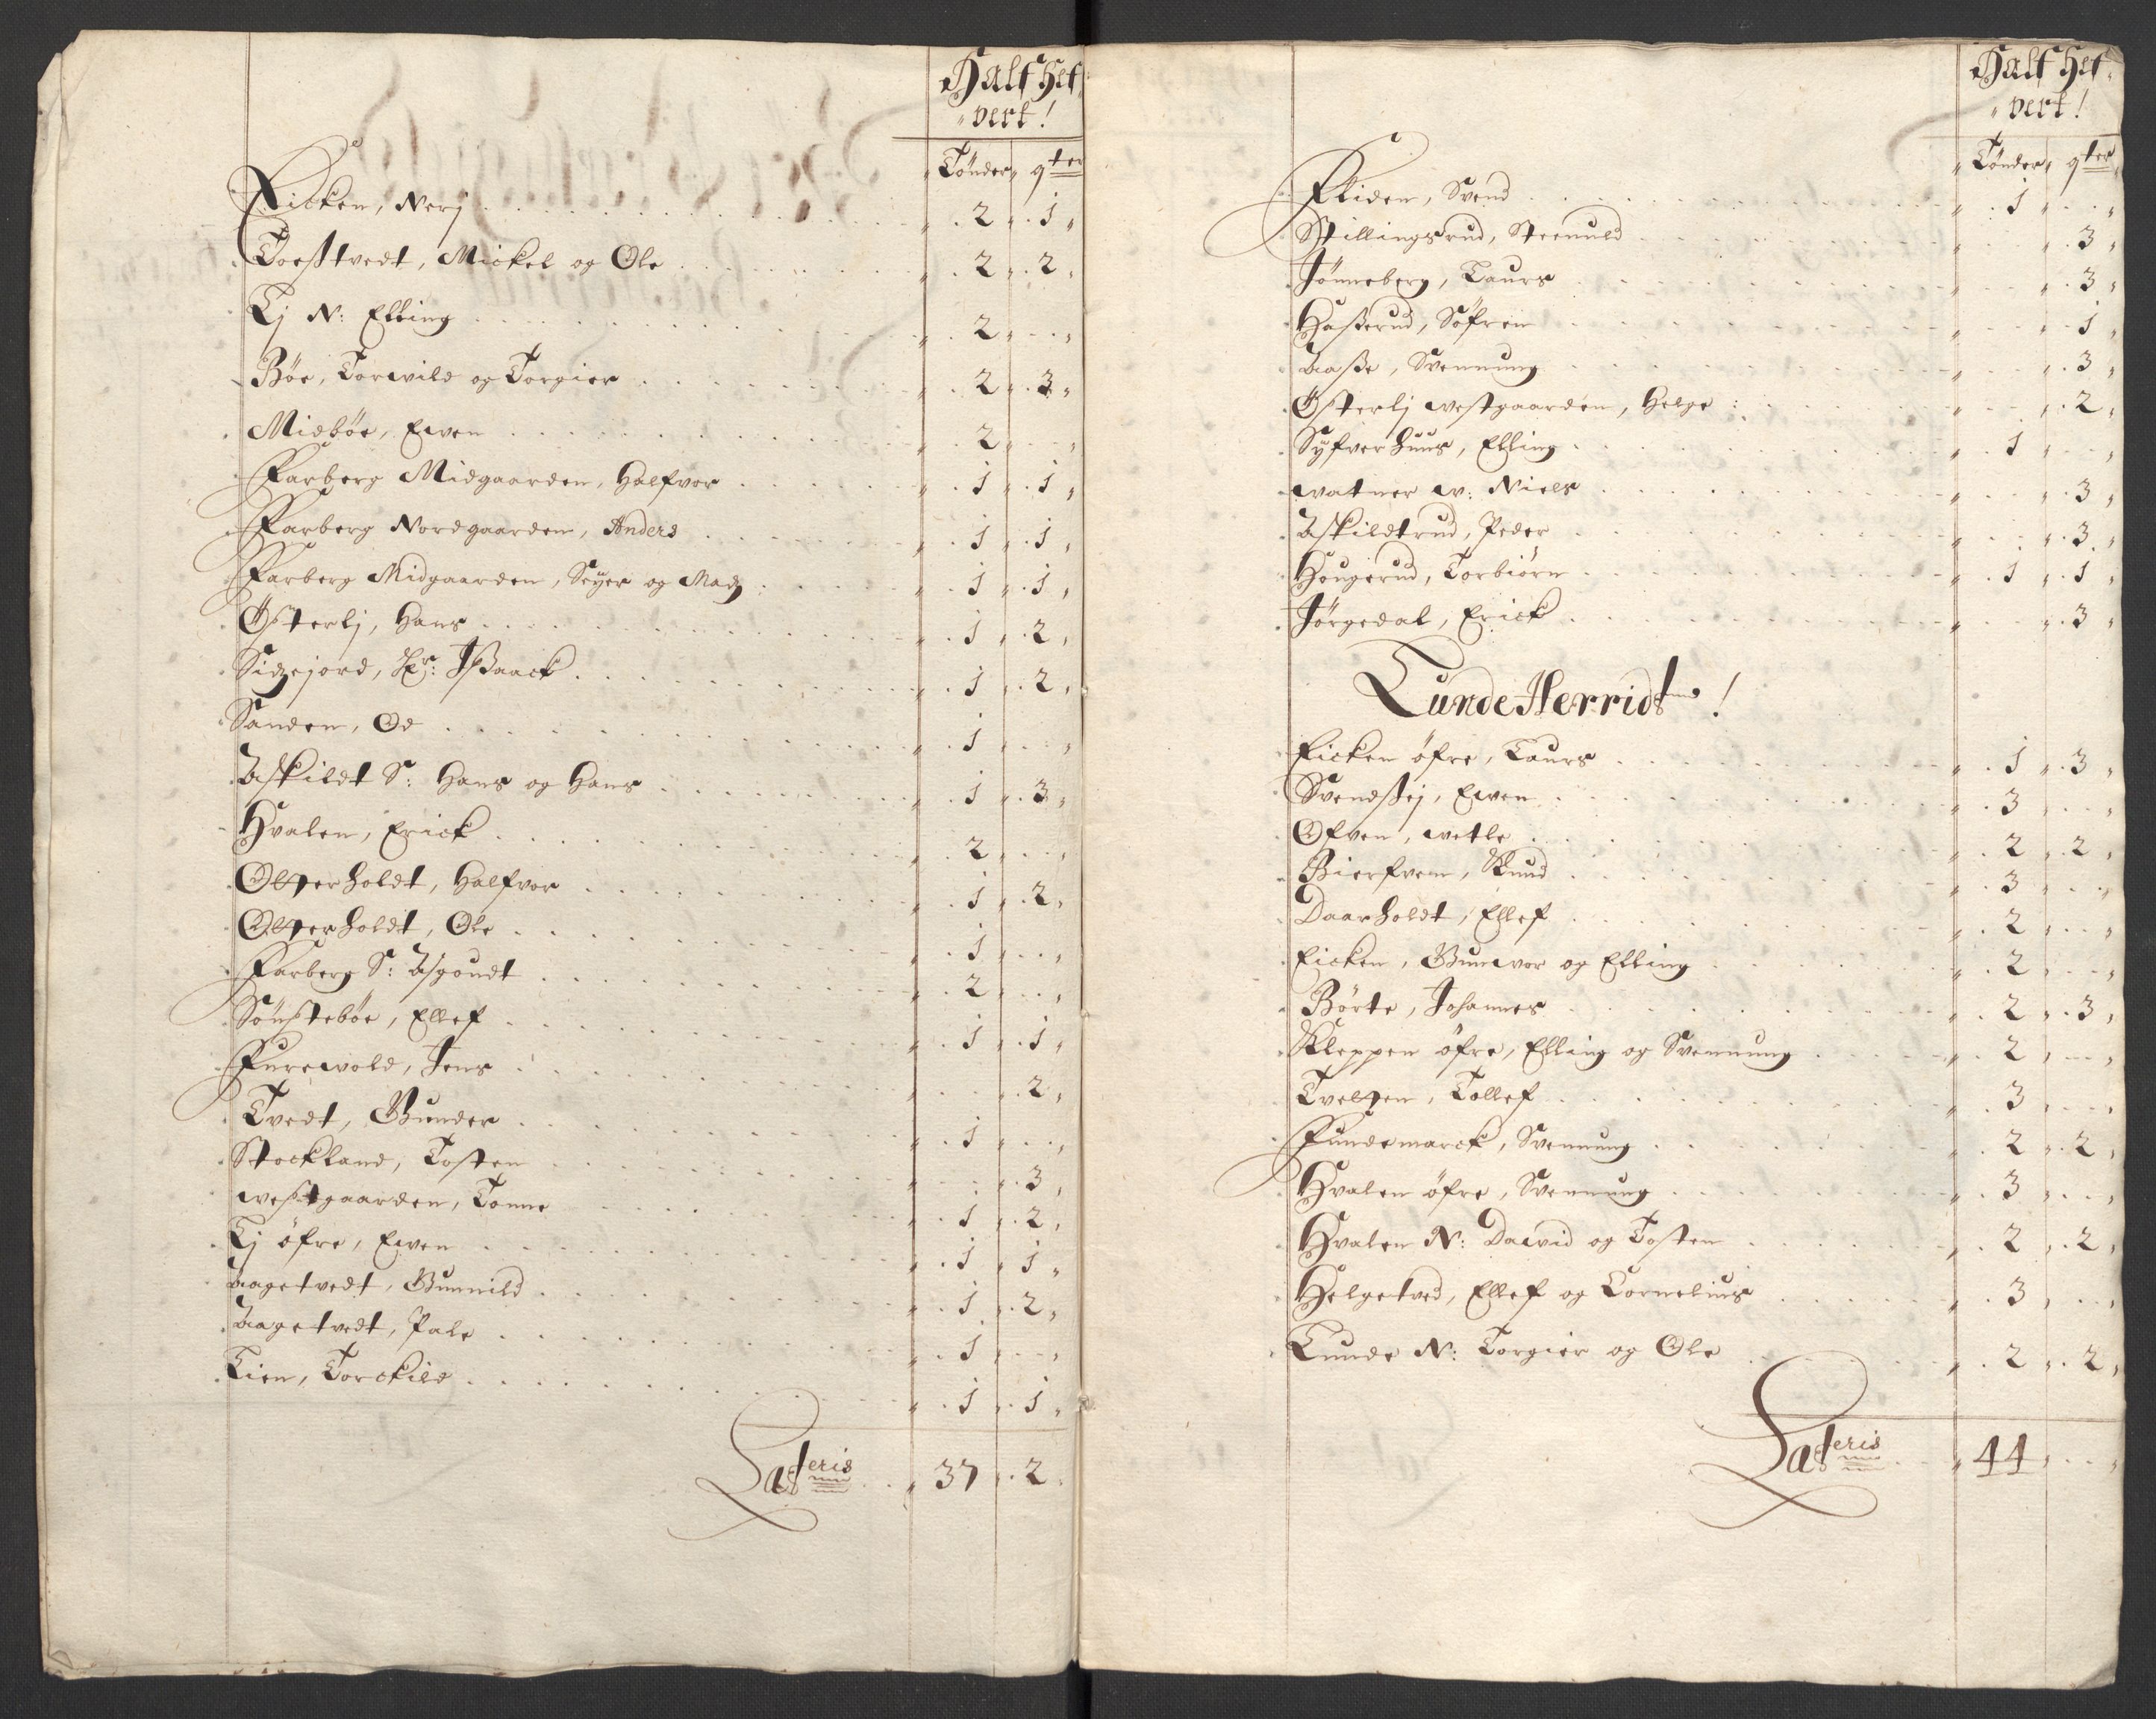 Half Hef
vert!
Tønder qter
Eicken, Nerj 2 1
Toestvedt, Mickel og Ole 2 2
Lj N: Elling 2
Bøe, Torwild og Torgier 2 3
Midbøe, Ewen 2
Farberg Midgaarden, Halfvor 1 1
Farberg Nordgaarden, Anders 1 1
Farberg Midgaarden, Seyer og Madz 1 1
Østerlj, Hans 1 2
Sidzejord, Hr: Jssaack 1 2
Sanden, Od 1
Askildt S: Hans og Hans 1 3
Hvalen, Erick 2
Olterholdt, Halfvor 1 2
Olterholdt, Ole 1
Farberg S: Asgoudt 2
Sönstebøe, Ellef 1 1
Furewold, Jens 2
Tvedt, Gunder 1
Stockland, Tosten 3
westgaarden, Tonne 1 2
Lj öfre, Ewen 1 1
Aagetvedt, Gunnild 1 2
Aagetvedt, Pale 1
Lien, Torckild 1 1
Lateris 37 2
Half Hef
vert!
Tønder qter
Eliden, Svend 1
Stillingsrud, Steenuld 3
Jönneberg, Laurs 3
Hasserud, Söfren 1
Aasse, Svennung 3
Østerlj westgaarden, Helge 2
Syfverhuus, Elling 1
watner w: Niels 3
Askildtrud, Peder 3
Hougerud, Torbiörn 1 1
Jörgedal, Erick 3
Lunde Herridt!
Eicken öfre, Laurs 1 3
Svendssej, Ewen 3
Ofven, wetle 2 2
Bierfven, Knud 3
Daarholdt, Ellef 2
Eicken, Gunwor og Elling 2
Börte, Johannes 2 3
Kleppen öfre, Elling og Svennung 2
Tvelten, Tollef 3
Fundemarck, Svennung 2 2
Hvalen öfre, Svennung 3
Hvalen N: Dawid og Tosten 2 2
Helgetved, Ellef og Cornelius 3
Lunde N: Torgier og Ole 2 2
Lateris 44